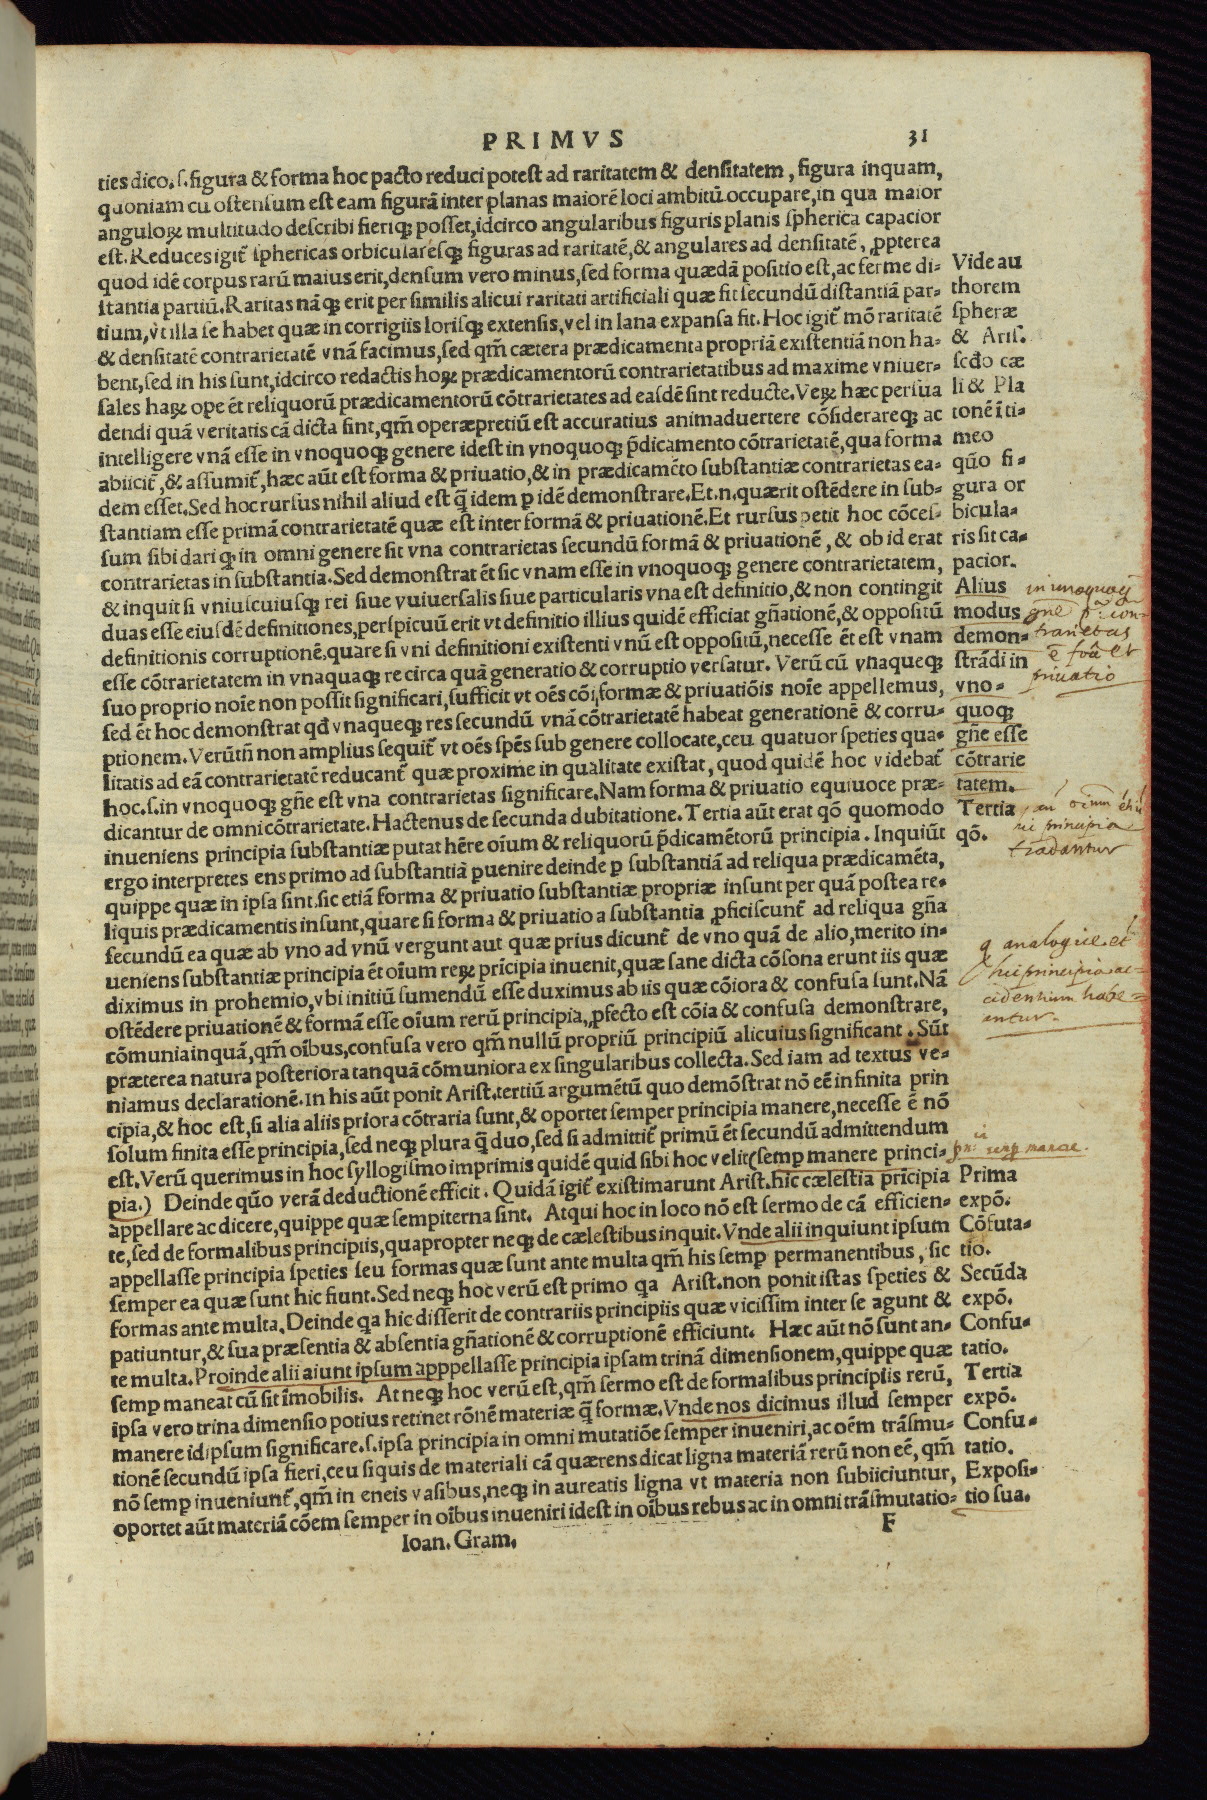 PRIMVS 31
ties dico. s. figura & forma hoc pacto reduci potest ad raritatem & densitatem, figura inquam,
quoniam cu ostensum est eam figurā inter planas maiorē loci ambitū occupare, in qua maior
anguloꝝ multitudo describi fieriqꝫ posset, idcirco angularibus figuris planis spherica capacior
est. Reduces igit̃ sphericas orbicularesqꝫ figuras ad raritatē, & angulares ad densitatē, ꝓpterea
quod idē corpus rarū maius erit, densum vero minus, sed forma quædā positio est, ac ferme di-
stantia partiū. Raritas nāqꝫ erit per similis alicui raritati artificiali quæ fit secundū distantiā par-
tium, vt illa se habet quæ in corrigiis lorisqꝫ extensis, vel in lana expansa fit. Hoc igit̃ mō raritatē
& densitatē contrarietatē vnā facimus, sed qm̄ cætera prædicamenta propriā existentiā non ha-
bent, sed in his sunt, idcirco redactis hoꝝ prædicamentorū contrarietatibus ad maxime vniuer-
sales haꝝ ope ēt reliquorū prædicamentorū cōtrarietates ad easdē sint reducte. Veꝝ hæc persua
dendi quā veritatis cā dicta sint, qm̄ operæpretiū est accuratius animaduertere cōsiderareqꝫ ac
intelligere vnā esse in vnoquoqꝫ genere idest in vnoquoqꝫ p̄dicamento cōtrarietatē, qua forma
abiicit̃, & assumit̃, hæc aūt est forma & priuatio, & in prædicamēto substantiæ contrarietas ea-
dem esset. Sed hoc rursus nihil aliud est q̄ idem ꝑ idē demonstrare. Et. n. quærit ostēdere in sub-
stantiam esse primā contrarietatē quæ est inter formā & priuationē. Et rursus petit hoc cōces-
sum sibi dari qꝫ in omni genere sit vna contrarietas secundū formā & priuationē, & ob id erat
contrarietas in substantia. Sed demonstrat ēt sic vnam esse in vnoquoqꝫ genere contrarietatem,
& inquit si vniuscuiusqꝫ rei siue vuiuersalis siue particularis vna est definitio, & non contingit
duas esse eiusdē definitiones, perspicuū erit vt definitio illius quidē efficiat gn̄ationē, & oppositū
definitionis corruptionē. quare si vni definitioni existenti vnū est oppositū, necesse ēt est vnam
esse cōtrarietatem in vnaquaqꝫ re circa quā generatio & corruptio versatur. Verū cū vnaqueqꝫ
suo proprio noīe non possit significari, sufficit vt oēs cōi, formæ & priuatiōis noīe appellemus,
sed ēt hoc demonstrat qđ vnaqueqꝫ res secundū vnā cōtrarietatē habeat generationē & corru-
ptionem. Verūtn̄ non amplius sequit̃ vt oēs spēs sub genere collocate, ceu quatuor speties qua-
litatis ad eā contrarietatē reducant̃ quæ proxime in qualitate existat, quod quidē hoc videbat̃
hoc. s. in vnoquoqꝫ gn̄e est vna contrarietas significare. Nam forma & priuatio equiuoce præ-
dicantur de omni cōtrarietate. Hactenus de secunda dubitatione. Tertia aūt erat qō quomodo
inueniens principia substantiæ putat hēre oīum & reliquorū p̄dicamētorū principia. Inquiūt
ergo interpretes ens primo ad substantiā ꝑuenire deinde ꝑ substantiā ad reliqua prædicamēta,
quippe quæ in ipsa sint. sic etiā forma & priuatio substantiæ propriæ insunt per quā postea re-
liquis prædicamentis insunt, quare si forma & priuatio a substantia ꝓficiscunt̃ ad reliqua gn̄a
secundū ea quæ ab vno ad vnū vergunt aut quæ prius dicunt̃ de vno quā de alio, merito in-
ueniens substantiæ principia ēt oīum reꝝ prīcipia inuenit, quæ sane dicta cōsona erunt iis quæ
diximus in prohemio, vbi initiū sumendū esse duximus ab iis quæ cōiora & confusa sunt. Nā
ostēdere priuationē & formā esse oīum rerū principia, ꝓfecto est cōia & confusa demonstrare,
cōmunia inquā, qm̄ oībus, confusa vero qm̄ nullū propriū principiū alicuius significant. Sūt
præterea natura posteriora tanquā cōmuniora ex singularibus collecta. Sed iam ad textus ve-
niamus declarationē. In his aūt ponit Arist. tertiū argumētū quo demōstrat nō eē infinita prin
cipia, & hoc est, si alia aliis priora cōtraria sunt, & oportet semper principia manere, necesse ē nō
solum finita esse principia, sed neqꝫ plura q̄ duo, sed si admittit̃ primū ēt secundū admittendum
est. Verū querimus in hoc syllogismo imprimis quidē quid sibi hoc velit (semꝑ manere princi-
pia.) Deinde quō verā deductionē efficit. Quidā igit̃ existimarunt Arist. hic cælestia prīcipia
appellare ac dicere, quippe quæ sempiterna sint. Atqui hoc in loco nō est sermo de cā efficien-
te, sed de formalibus principiis, quapropter neqꝫ de cælestibus inquit. Vnde alii inquiunt ipsum
appellasse principia speties seu formas quæ sunt ante multa qm̄ his semꝑ permanentibus, sic
semper ea quæ sunt hic fiunt. Sed neqꝫ hoc verū est primo qa Arist. non ponit istas speties &
formas ante multa. Deinde qa hic disserit de contrariis principiis quæ vicissim inter se agunt &
patiuntur, & sua præsentia & absentia gn̄ationē & corruptionē efficiunt. Hæc aūt nō sunt an-
te multa. Proinde alii aiunt ipsum apppellasse principia ipsam trinā dimensionem, quippe quæ
semꝑ maneat cū sit īmobilis. At neqꝫ hoc verū est, qm̄ sermo est de formalibus principiis rerū,
ipsa vero trina dimensio potius retinet rōnē materiæ q̄ formæ. Vnde nos dicimus illud semper
manere id ipsum significare. s. ipsa principia in omni mutatiōe semper inueniri, ac oēm trāsmu-
tionē secundū ipsa fieri, ceu siquis de materiali cā quærens dicat ligna materiā rerū non eē, qm̄
nō semꝑ inueniunt̃, qm̄ in eneis vasibus, neqꝫ in aureatis ligna vt materia non subiiciuntur,
oportet aūt materiā cōem semper in oībus inueniri idest in oībus rebus ac in omni trāsmutatio-
Ioan. Gram. F
Vide au
thorem
spheræ
& Aris.
sedo cæ
li & Pla
tonē ī ti-
meo
quō fi-
gura or
bicula-
ris sit ca-
pacior.
Alius
modus
demon-
strādi in
vno-
quoqꝫ
gn̄e esse
cōtrarie
tatem.
Tertia
qō.
Prima
expō.
Cōfuta-
tio.
Secūda
expō.
Confu-
tatio.
Tertia
expō.
Confu-
tatio.
Exposi-
tio sua.
in unoquoq
gne pa con-
trarietas
ē foā et
priuatio
hic principia
tradantur
q analogice et
hic principia ac-
cidentium habe-
antur.
semp manere.